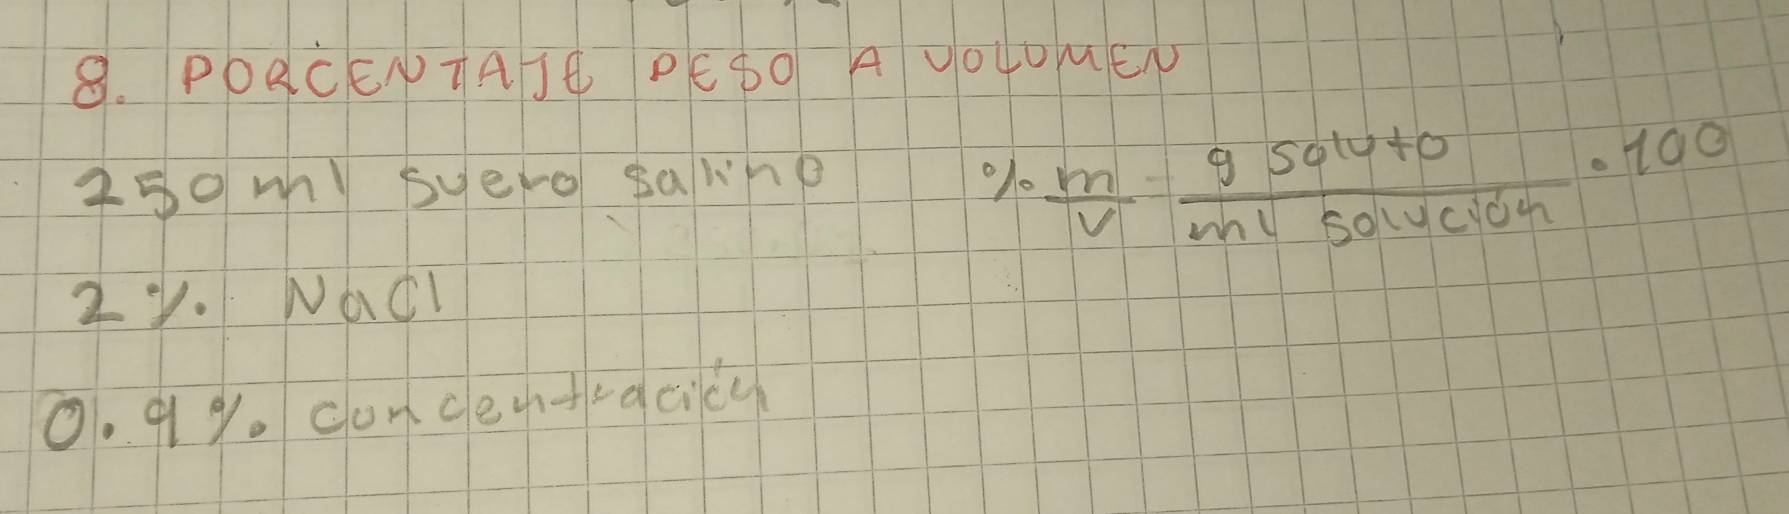 8. PORCENTAJE PESO A VOLUMEN
250 ml suero salino
% m/v = g soluto / ml solución . 100
2 %. NaCl
0.9 %. concentración